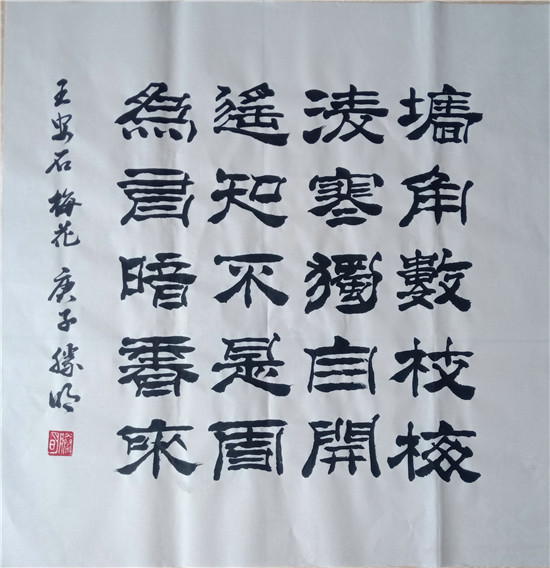 墻角數枝梅
淩寒獨自開
遙知不是
為暗香來
王安石梅花 庚子勝明